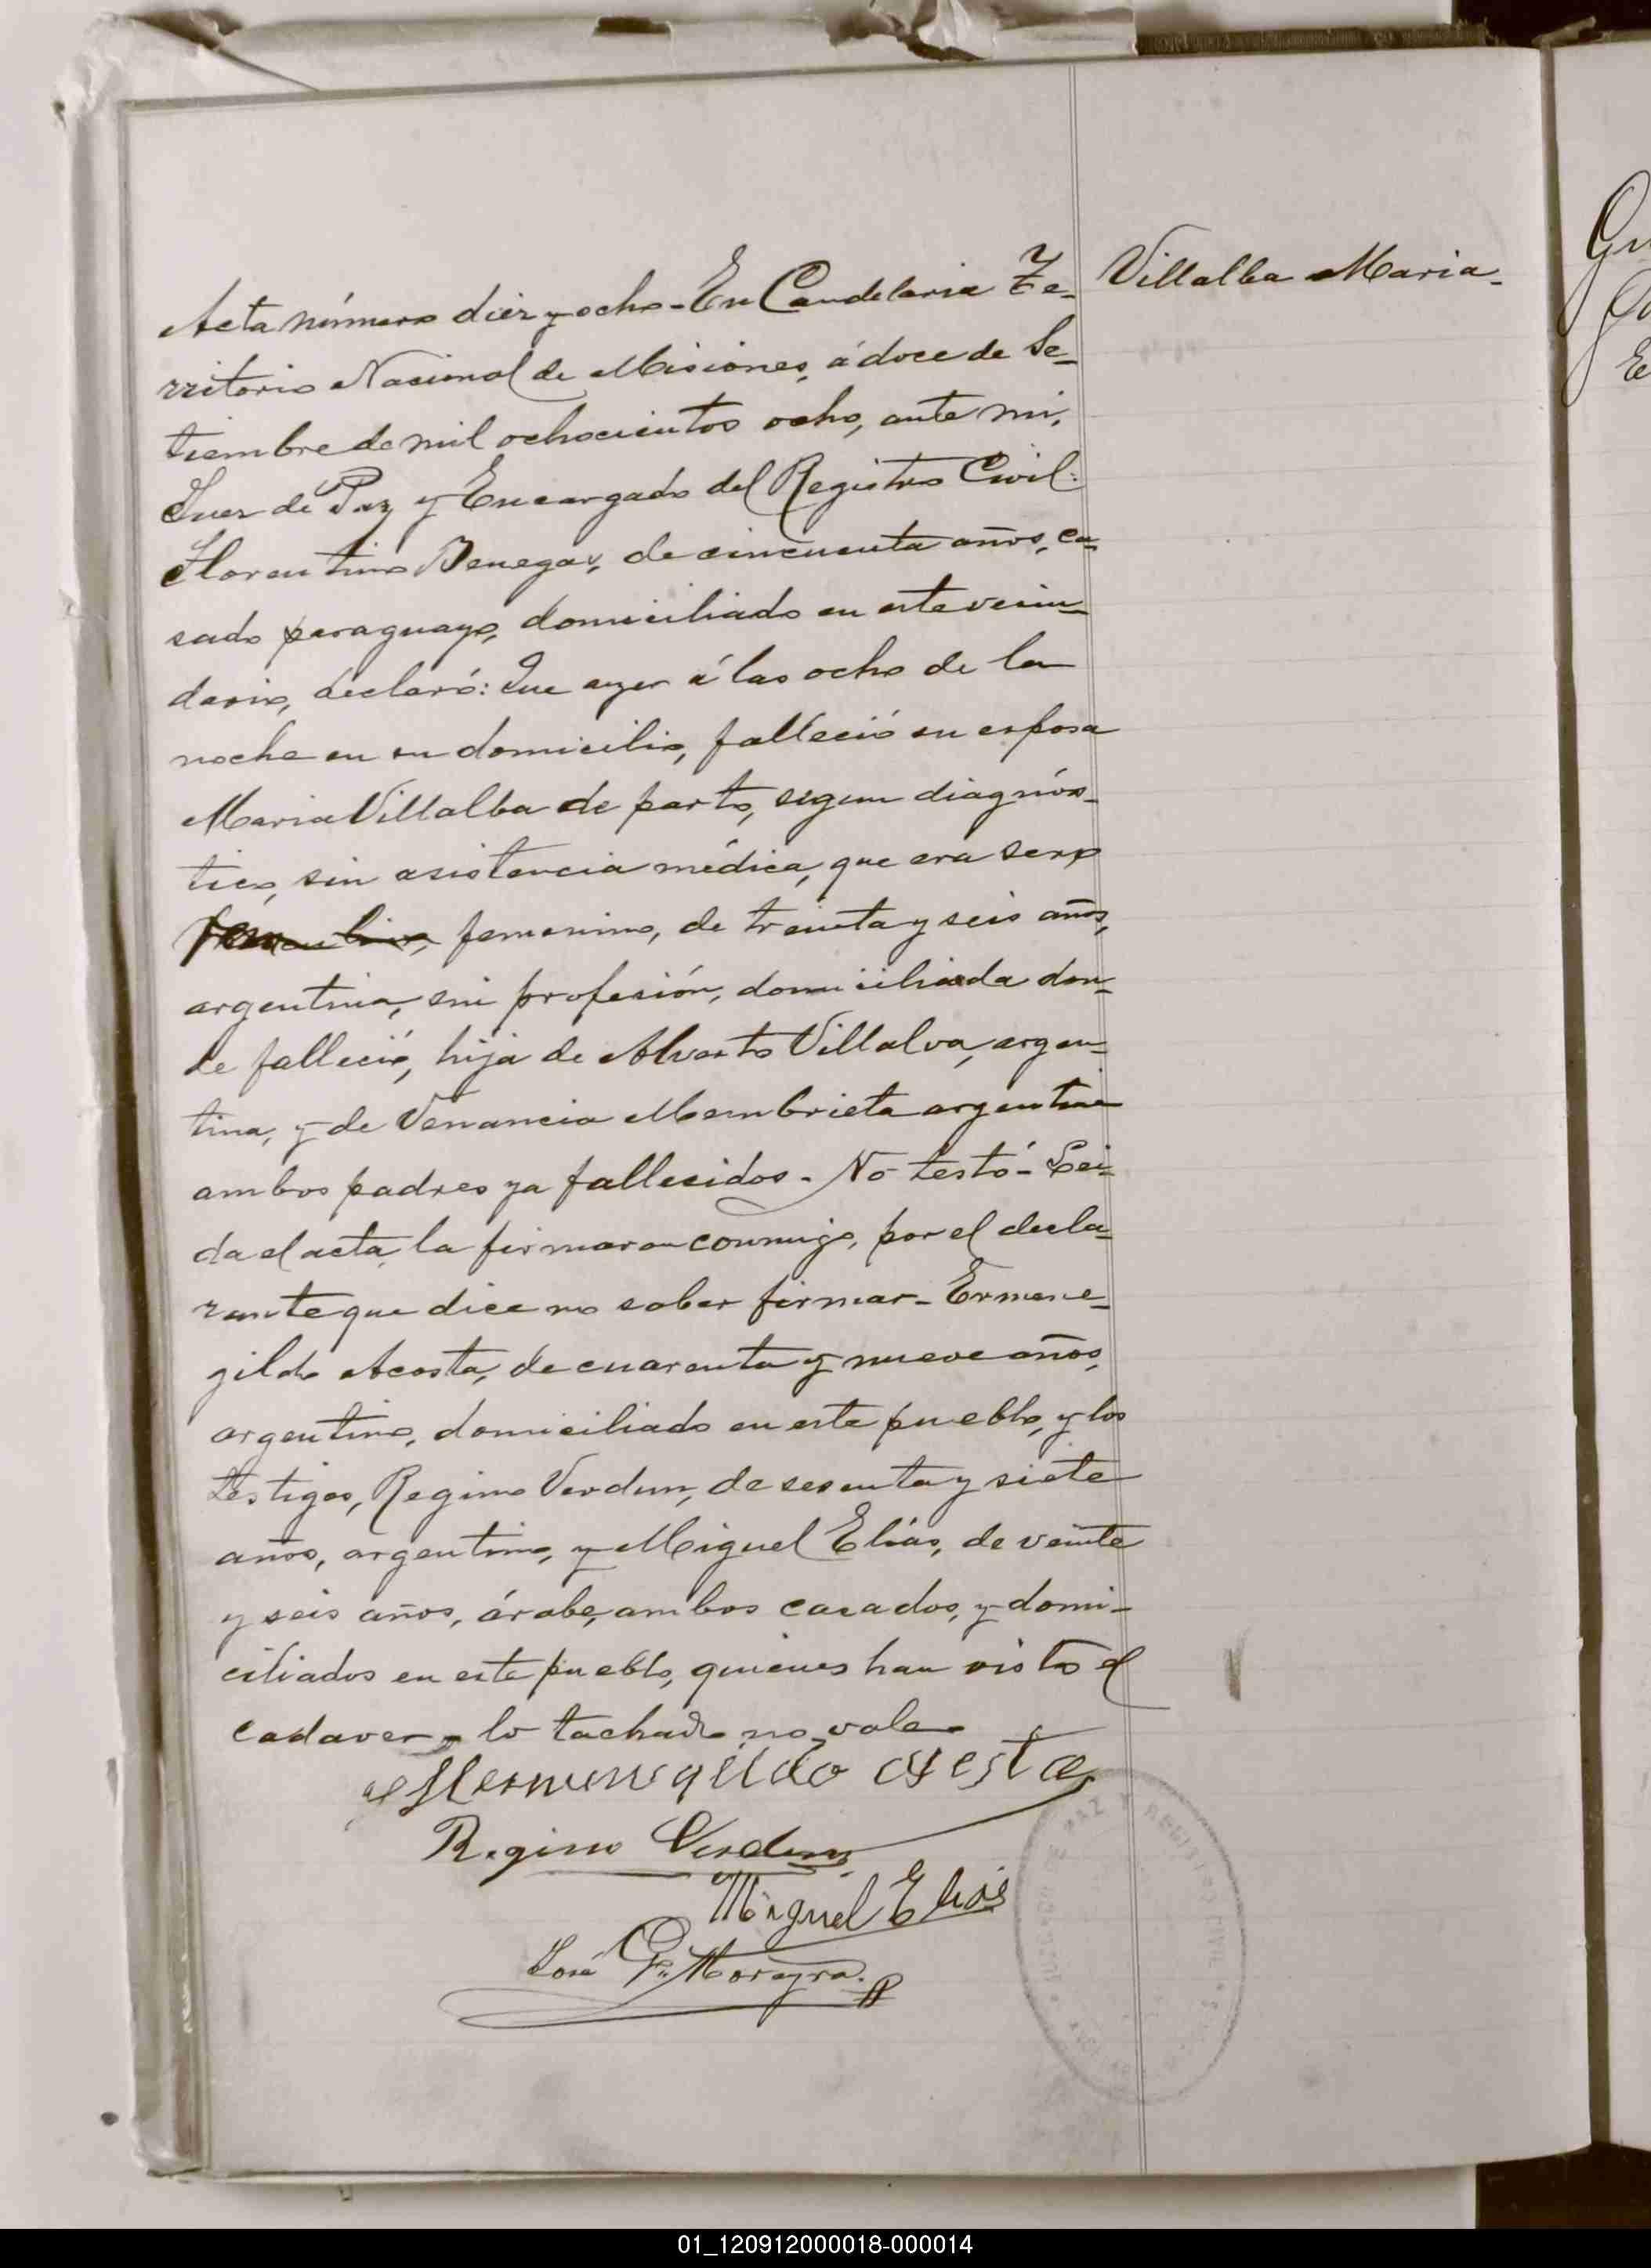 Villalba Maria-
Acta número diez y ocho - En Candelaria Te-
rritorio Nacional de Misiones, á doce de Se-
tiembre de mil ochocientos ocho, ante mi,
Juez de Paz y Encargado del Registro Civil:
Florentino Benegas, de cincuenta años, ca-
sado paraguayo, domiciliado en este vecin-
dario, declaró: Que ayer á las ocho de la
noche en su domicilio, falleció su esposa
Maria Villalba de parto, segun diagnós-
tico, sin asistencia médica, que era sexo
femenino, de treinta y seis años,
argentina, sin profesión, domiciliada don-
de falleció, hija de Alverto Villalva, argen-
tina, y de Venancia Membrieta argentina
ambos padres ya fallecidos - No testó - Lei-
da el acta, la firmaron conmigo, por el decla-
rante que dice no saber firmar - Ermene-
gildo Acosta, de cuarenta y nueve años,
argentino, domiciliado en este pueblo, y los
testigos, Regino Verdun, de sesenta y siete
años, argentino, y Miguel Elías, de veinte
y seis años, árabe, ambos casados, y domi-
ciliados en este pueblo, quienes han visto el
cadaver - lo tachado no vale -
Regino Verdun
Miguel Elias
José G. Moreyra.
Gu
E
01_120912000018-000014